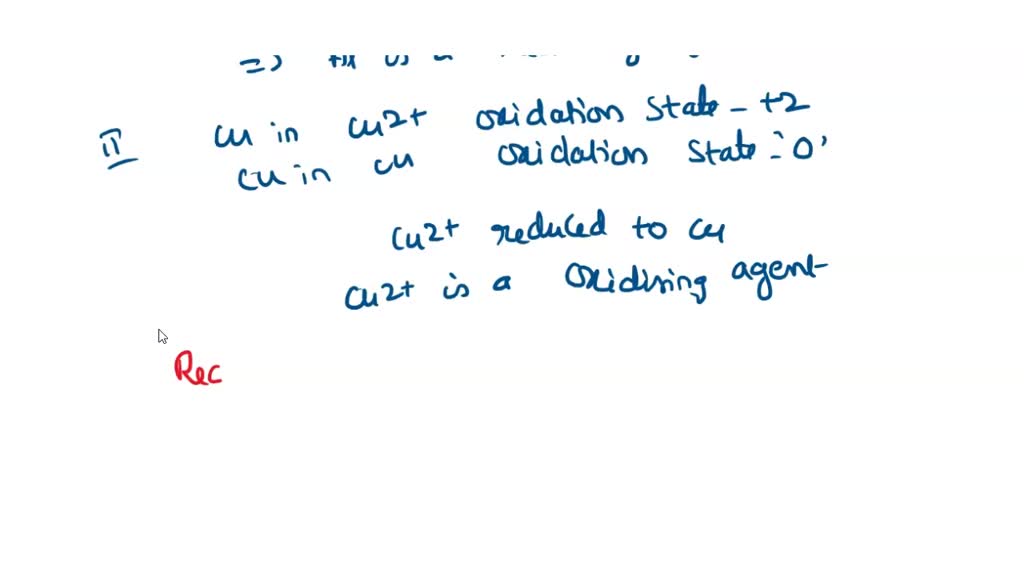 is a
II Cu in Cu2+ oxidation State - +2
Cu in Cu oxidation State : 0'
Cu2+ reduced to Cu
Cu2+ is a Oxidising agent
Rec